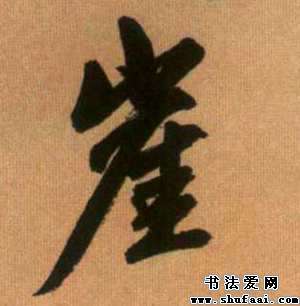 崖
书法爱网
www.shufaai.com